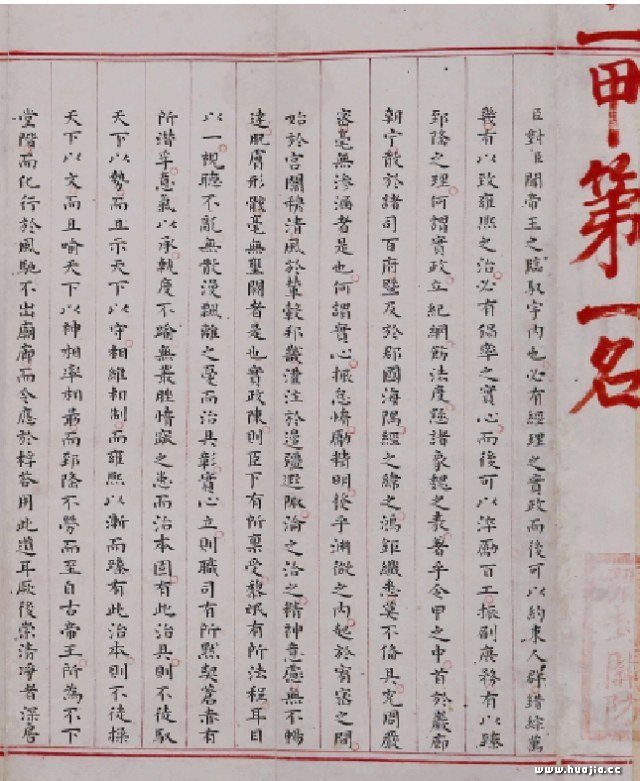 一甲第一名
臣對臣聞帝王之臨馭宇內也必有經理之實政而後可以約束人群錯綜萬
幾有以致雍熙之治必有倡率之實心而後可以淬勵百工振刷庶務有以臻
郅隆之理何謂實政立紀綱飭法度懸諸象魏之表著乎令甲之中首於巖廊
朝宁散於諸司百府暨及於郡國海隅經之緯之鴻鉅纖悉莫不備具充周嚴
密毫無滲漏者是也何謂實心振怠惰勵精明發乎淵微之內起於宥密之間
始於宮闈穆清風於輦轂邦畿灌注於邊疆遐陬淪之洽之精神意慮無不暢
達肌膚形骸毫無壅閼者是也實政陳則臣下有所稟受黎氓有所法程耳目
以一視聽不亂無散漫飄離之憂而治具彰實心立則職司有所默契蒼赤有
所潛孚意氣以承軌度不踰無叢脞惰窳之患而治本固有此治具則不徒馭
天下以勢而且示天下以守相維相制而雍熙以漸而臻有此治本則不徒操
天下以文而且喻天下以神相率相勗而郅隆不勞而至自古帝王所為不下
堂階而化行於風馳不出廟廊而令應於桴答用此道耳厥後崇清淨者深居
www.huajia.cc